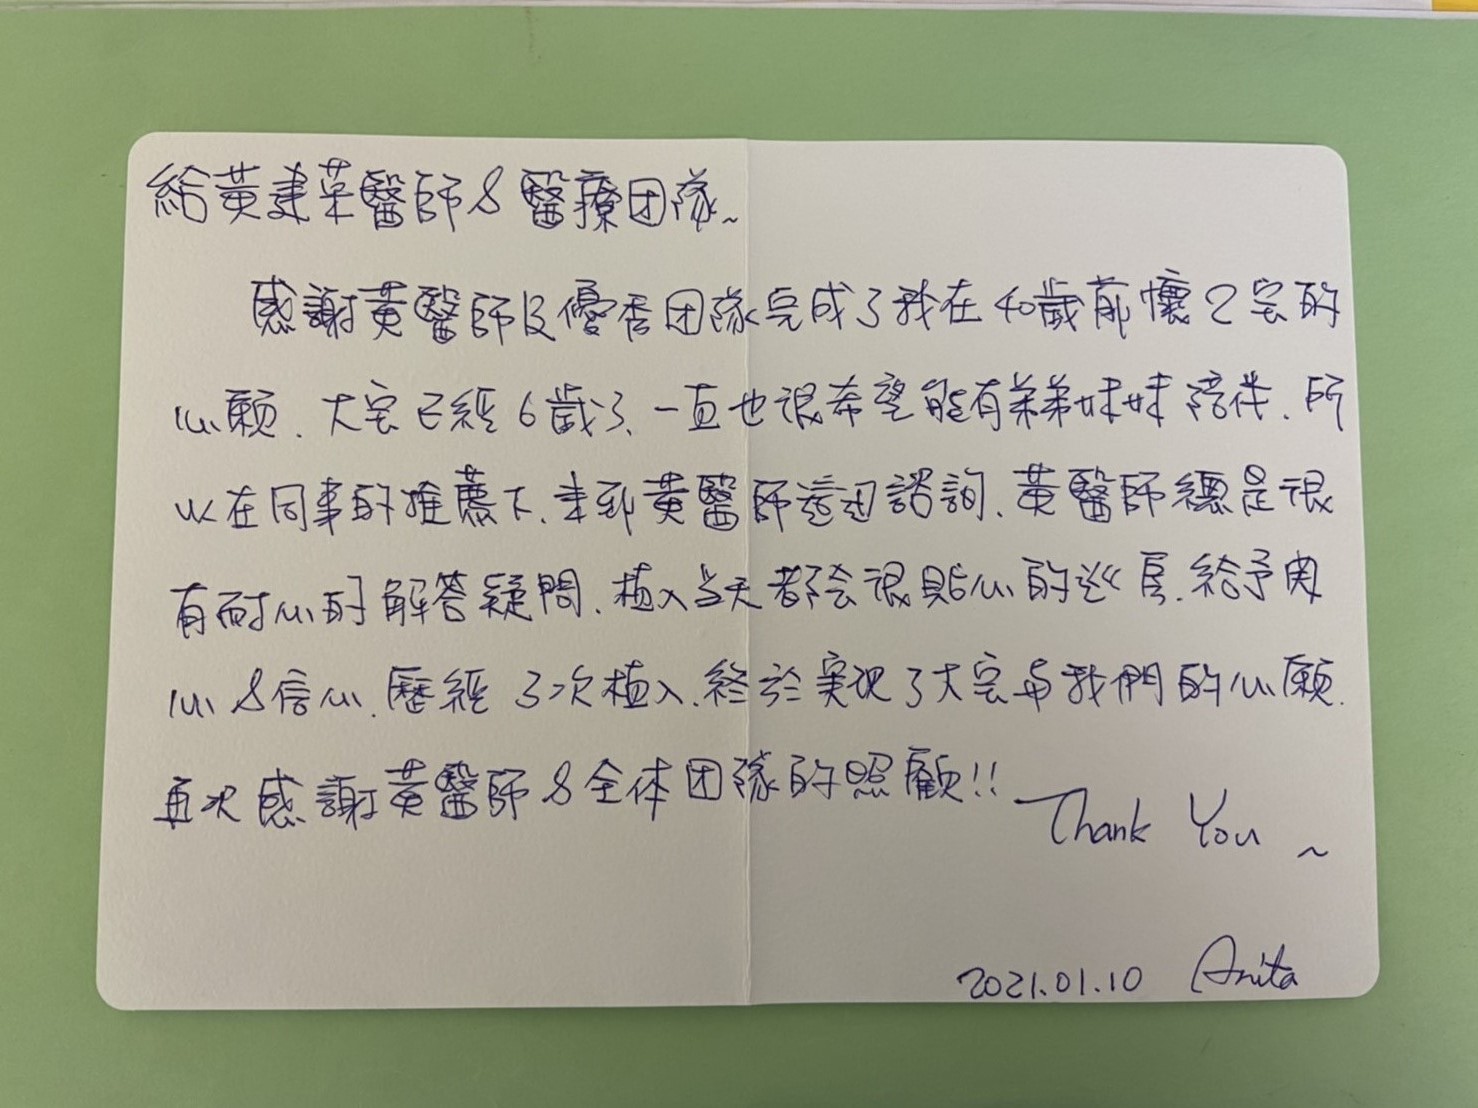 給黃建榮醫師 & 醫療团隊~
感謝黃醫師及優秀团隊完成了我在40歲前懷2宝的
心願. 大宝已經6歲了、一直也很希望能有弟弟妹妹陪伴. 所
以在同事的推薦下. 來到黃醫師這边諮詢. 黃醫師總是很
有耐心的解答疑問. 植入当天都会很貼心的巡房. 給予関
心 & 信心. 歷經3次植入. 終於实現了大宝与我們的心願.
再次感謝黃醫師 & 全体团隊的照顧!!
Thank You ~
2021.01.10 Anita